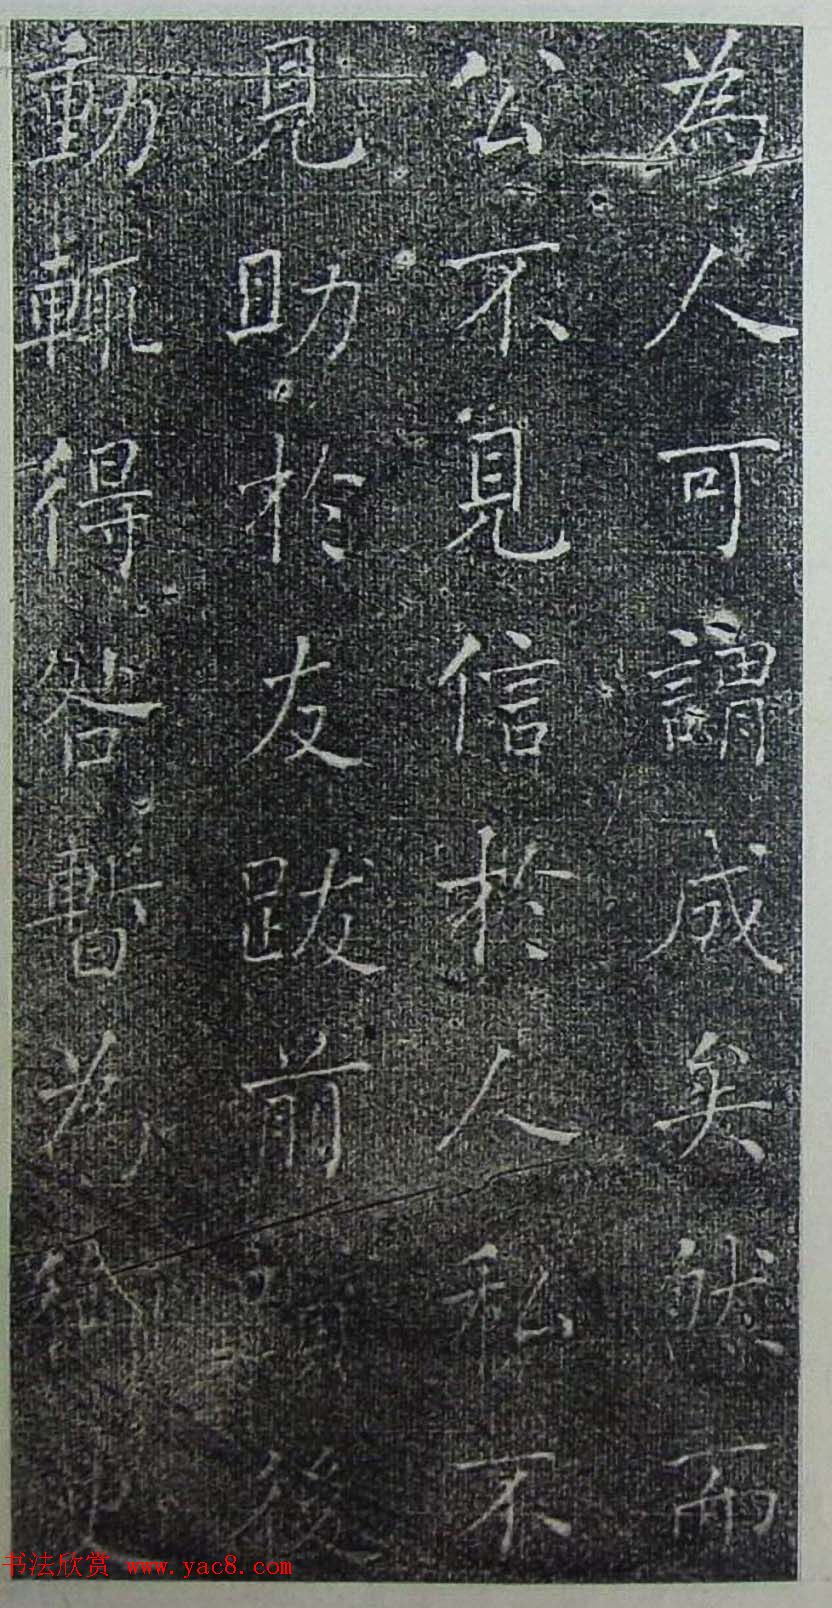 為人可謂成矣然而
公不見信於人私不
見助於友跋前後
動輒得咎暫為御史
书法欣赏 www.yac8.com